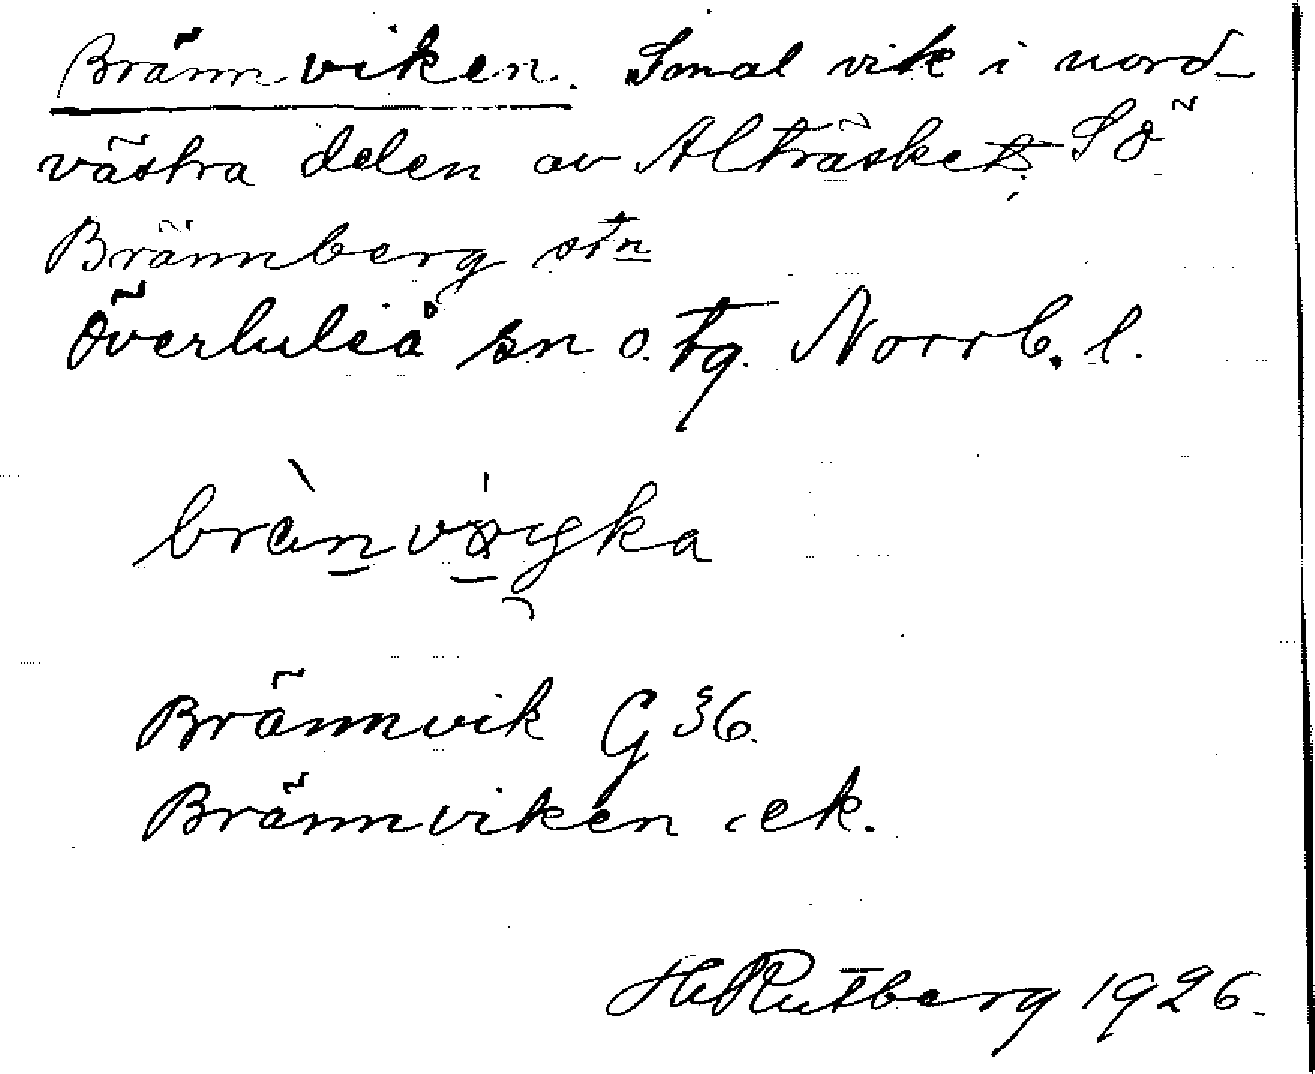 Brännviken. Smal vik i nord-
västra delen av Alträsket, SÖ
Brännberg stn
Överluleå sn o. tg. Norrb. l.
Brännvik G 36.
Brännviken ek.
H Rutberg 1926.